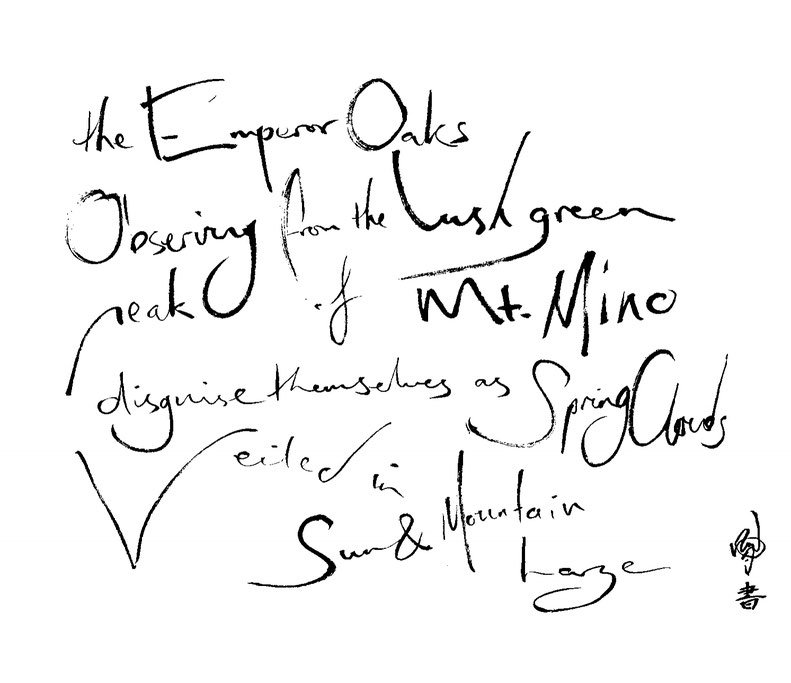 the Emperor Oaks
Observing from the lush green
peak of Mt. Mino
disguise themselves as Spring Clouds
Veiled in
Sun & Mountain
haze
書